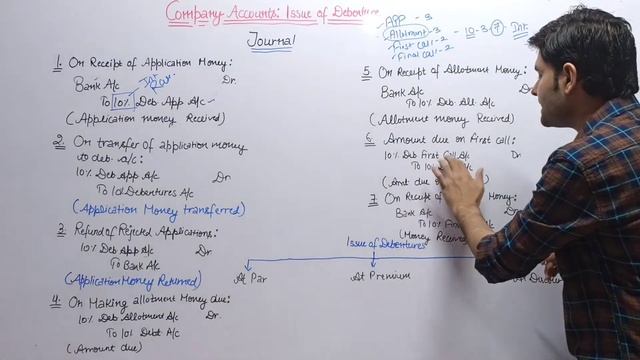 Company Accounts: Issue of Debenture
Journal
1. On Receipt of Application Money:
Bank A/c Dr.
To 10% Deb App A/c
(Application money Received)
2. On transfer of application money
to deb. a/c:
10% Deb App A/c Dr
To 10% Debentures A/c
(Application Money transferred)
3. Refund of Rejected Applications:
10% Deb App A/c Dr.
To Bank A/c
(Application Money Returned)
4. On Making allotment Money due:
10% Deb Allotment A/c Dr.
To 10% Debt A/c
(Amount due)
APP - 3
Allotment - 3
First Call - 2
Final Call - 2
10 - 3 7 Int.
5. On Receipt of Allotment Money:
Bank A/c Dr
To 10% Deb. All A/c
(Allotment money Received)
6. Amount due on First call:
10% Deb First Call A/c Dr
To 10% A/c
(Amt due
7. On Receipt Money:
Bank A/c
To 10% Fir
(Money Received
Issue of Debentures
At Par
At Premium